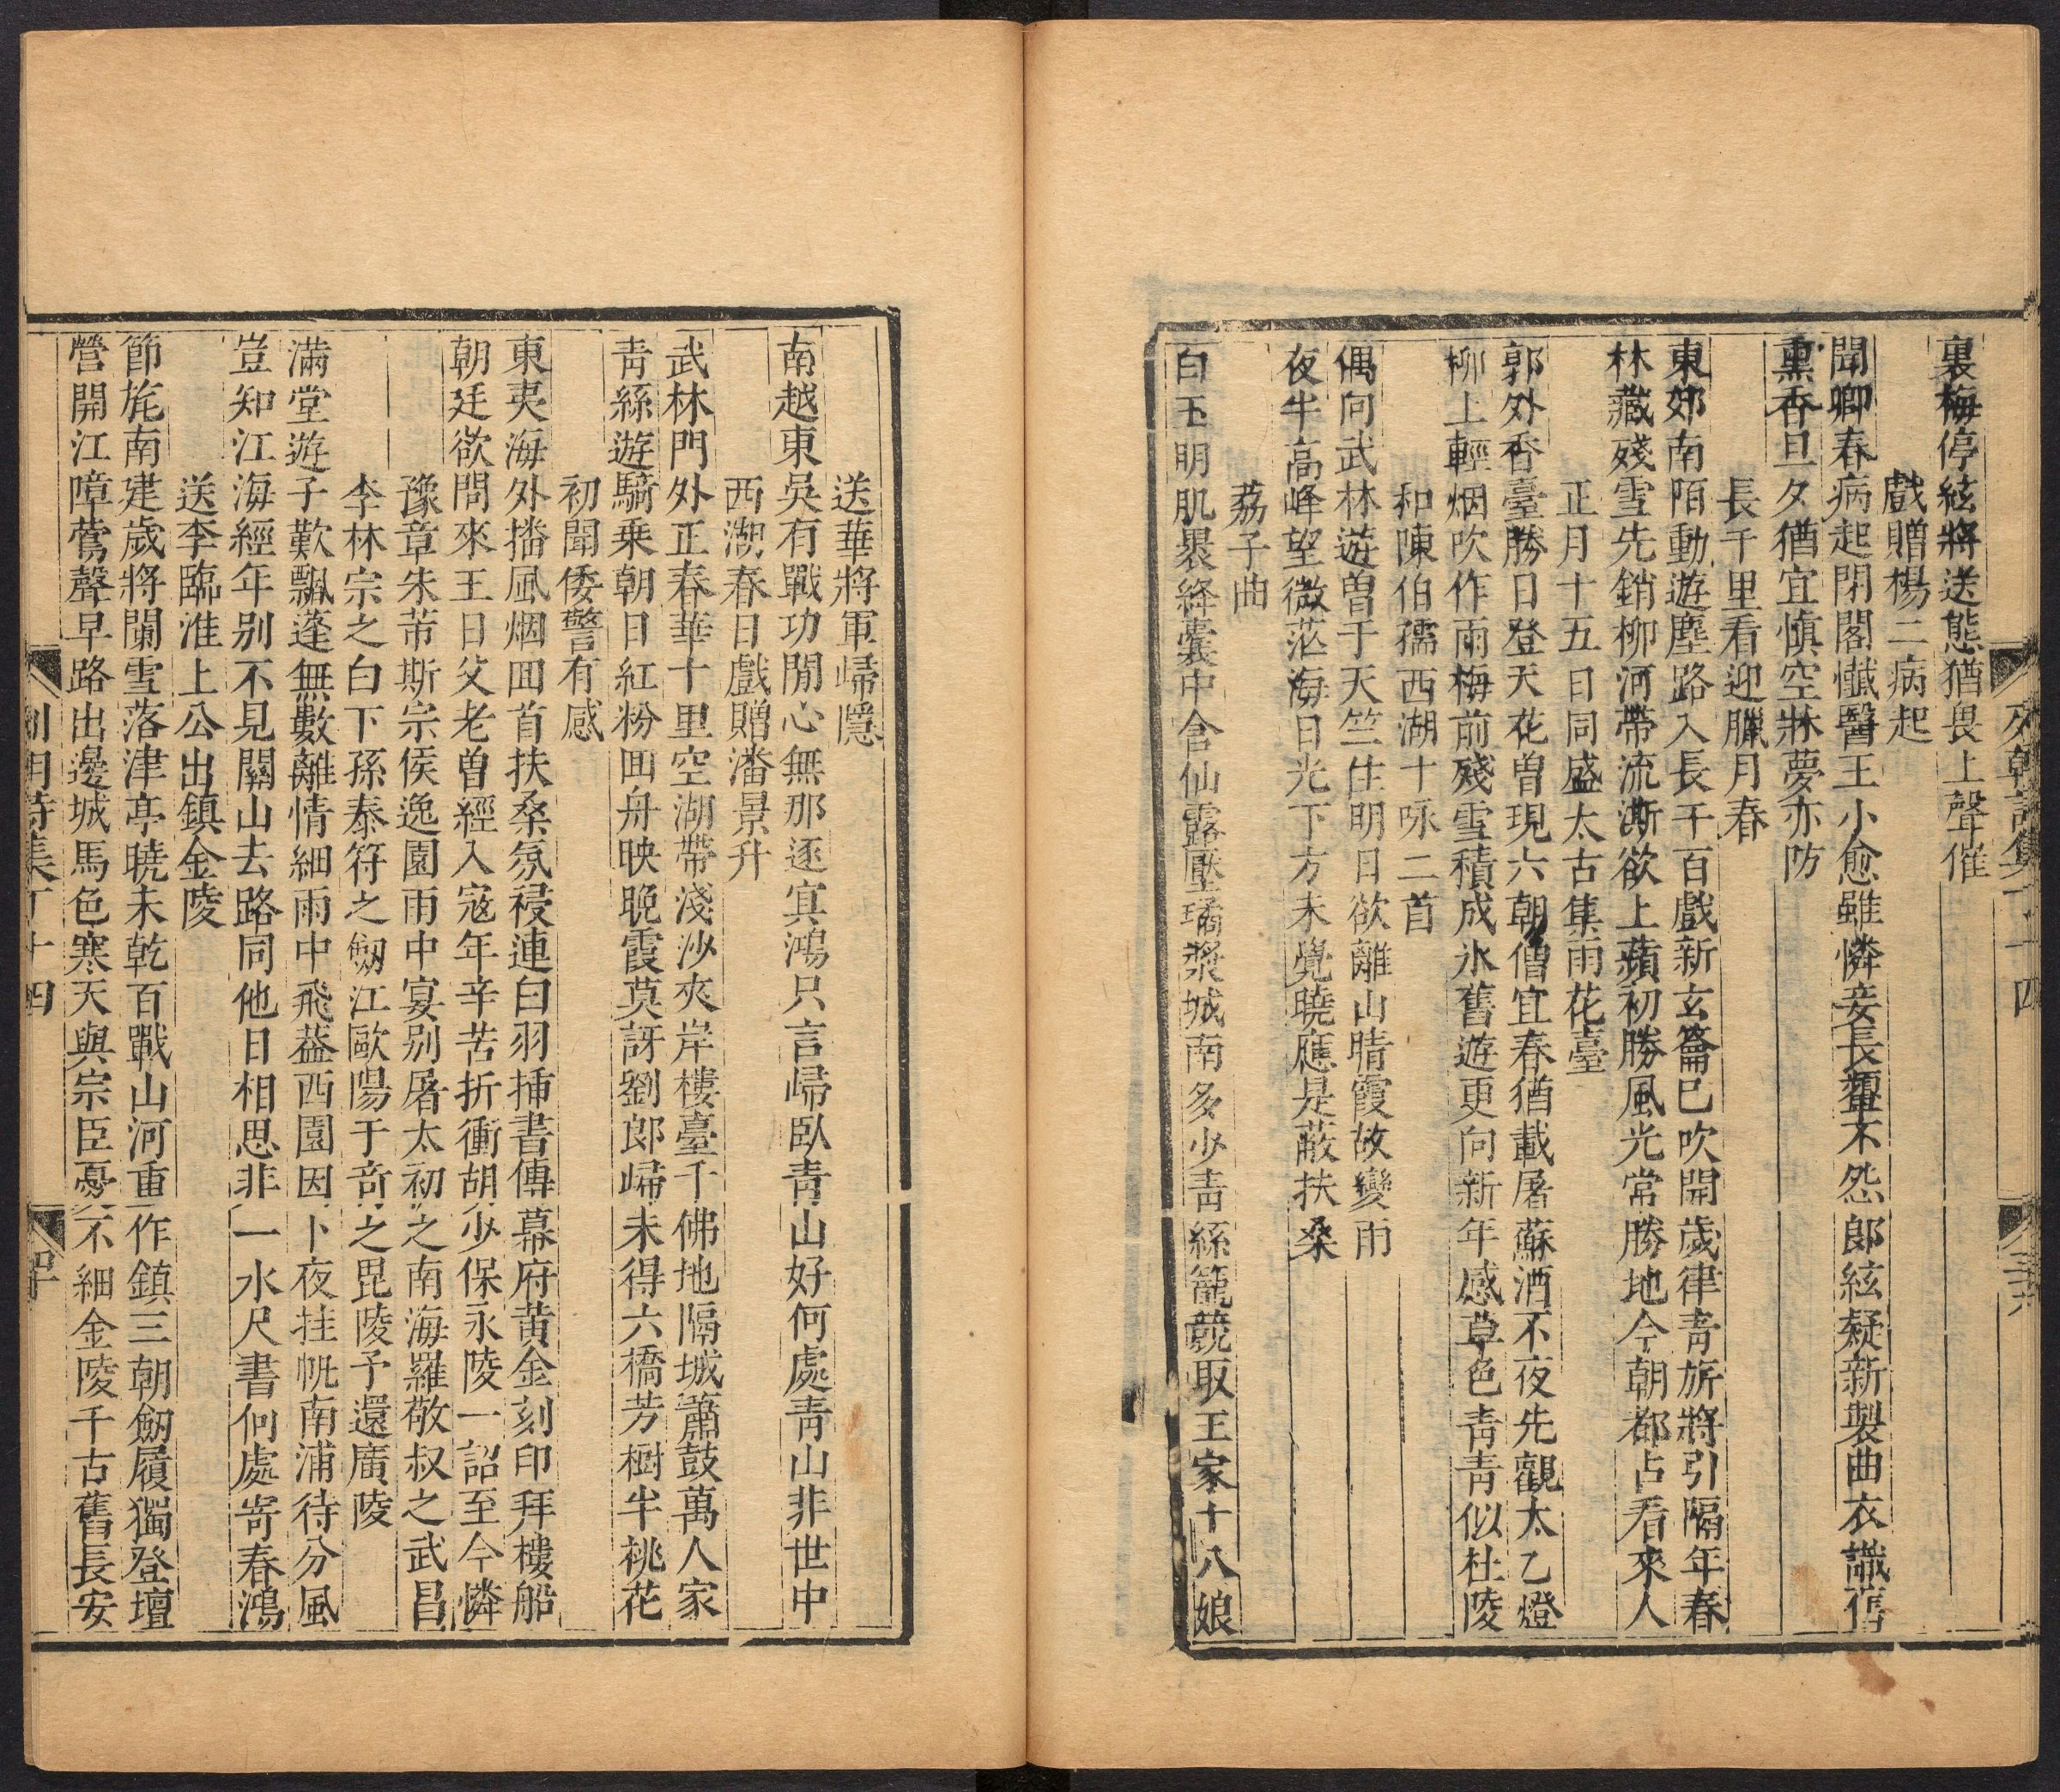 裏梅停絃將送態猶畏上聲催
戲贈楊二病起
聞卿春病起閉閣懺醫王小愈雖憐妾長顰不怨郞絃疑新製曲衣識舊
熏香旦夕猶宜愼空牀夢亦防
長干里看迎臘月春
東郊南陌動遊塵路入長干百戲新玄籥已吹開歲律靑旂將引隔年春
林藏殘雪先銷柳河帶流澌欲上蘋初勝風光常勝地今朝都占看來人
正月十五日同盛太古集雨花臺
郭外香臺勝日登天花曽現六朝僧宜春猶載屠蘇酒不夜先觀太乙燈
柳上輕烟吹作雨梅前殘雪積成氷舊遊更向新年感草色靑靑似杜陵
和陳伯孺西湖十咏二首
偶向武林遊曽于天竺住明日欲離山晴霞故變雨
夜半高峰望微茫海日光下方未覺曉應是蔽扶桑
荔子曲
白玉明肌褁絳囊中含仙露壓璚漿城南多少靑絲籠競取王家十八娘
送華將軍歸隱
南越東吳有戰功閒心無那逐冥鴻只言歸臥靑山好何處靑山非世中
西湖春日戲贈潘景升
武林門外正春華十里空湖帶淺沙夾岸樓臺千佛地隔城簫鼓萬人家
靑絲遊騎乗朝日紅粉囬舟映晚霞莫訝劉郞歸未得六橋芳樹半桃花
初聞倭警有感
東夷海外播風烟囬首扶桑氛祲連白羽揷書傳幕府黃金刻印拜樓船
朝廷欲問來王日父老曽經入寇年辛苦折衝胡少保永陵一詔至今憐
豫章朱芾斯宗侯逸園雨中宴别屠太初之南海羅敬叔之武昌
李林宗之白下孫泰符之劒江歐陽于竒之毘陵予還廣陵
滿堂遊子歎飄蓬無數離情細雨中飛葢西園因卜夜挂帆南浦待分風
豈知江海經年别不見關山去路同他日相思非一水尺書何處寄春鴻
送李臨淮上公出鎮金陵
節旄南建歲將闌雪落津亭曉未乾百戰山河重作鎮三朝劒履獨登壇
營開江嶂鶯聲早路出邊城馬色寒天與宗臣憂不細金陵千古舊長安